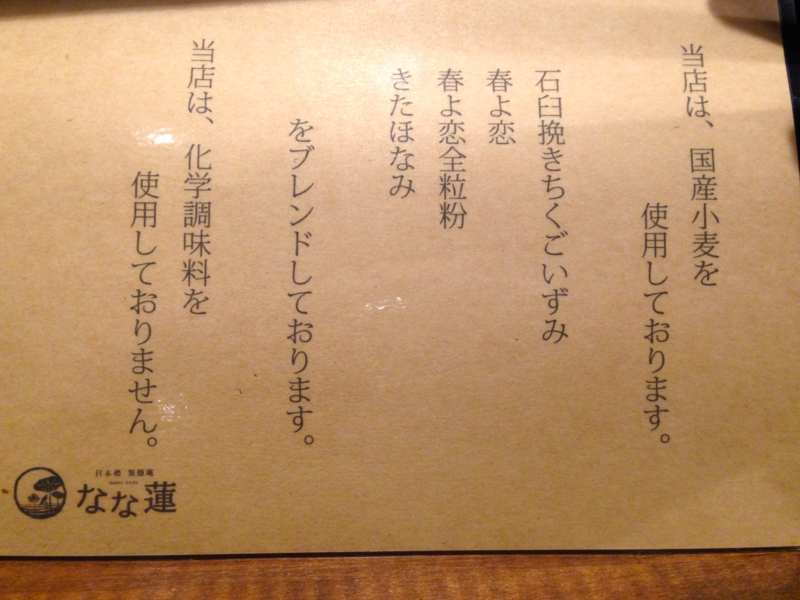 当店は、国産小麦を
使用しております。
石臼挽きちくごいずみ
春よ恋
春よ恋全粒粉
きたほなみ
をブレンドしております。
当店は、化学調味料を
使用しておりません。
日本橋 製麺庵
なな蓮